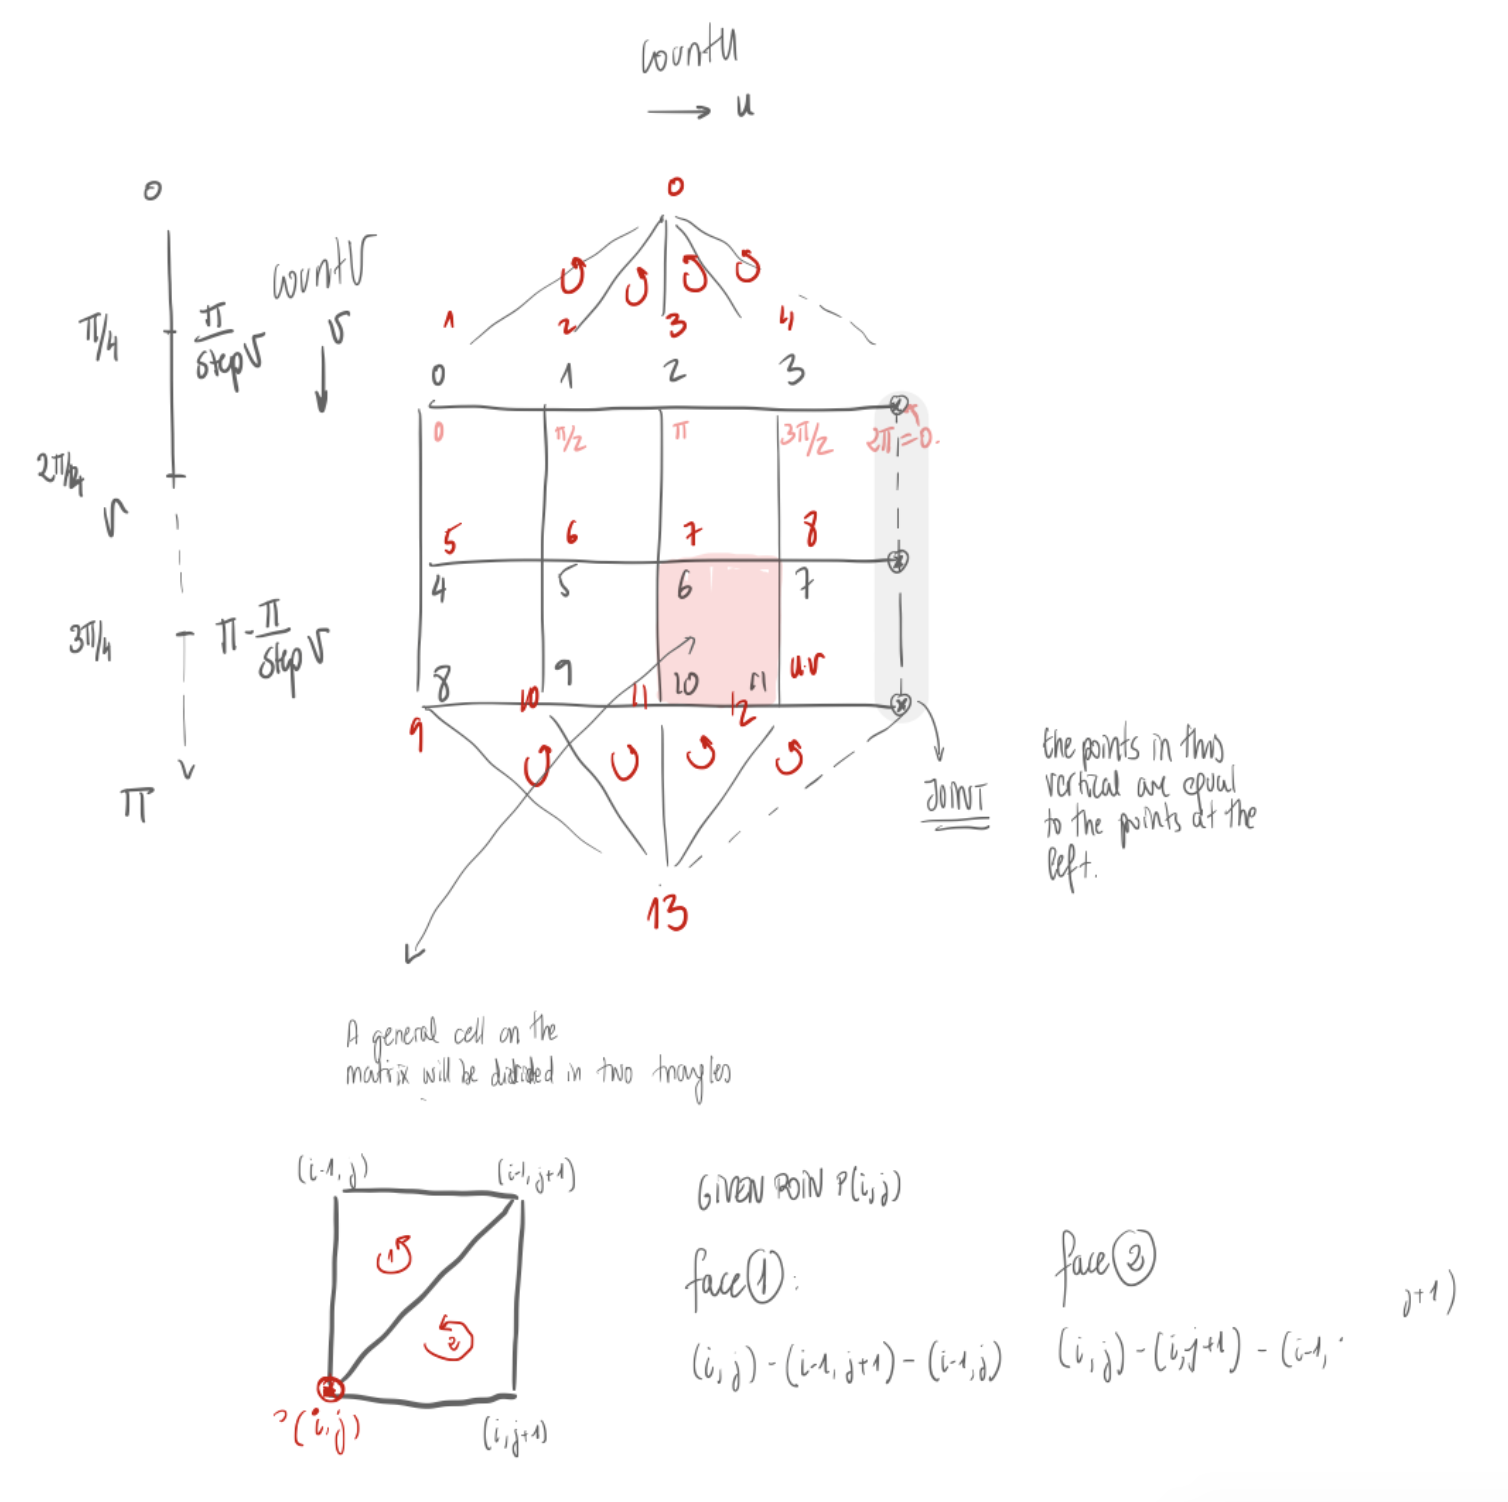 countU
→ u
0
0
countV
π/4
π/stepV
v
1
2
3
4
0
1
2
3
0
π/2
π
3π/2
2π=0.
2π/4
v
5
6
7
8
4
5
6
7
3π/4
π-π/stepV
u.v
8
9
10
11
9
10
11
12
π
JOINT
the points in this
vertical are equal
to the points at the
left.
13
A general cell on the
matrix will be divided in two triangles
(i-1, j)
(i-1, j+1)
1
2
P(i,j)
(i,j+1)
GIVEN POIN P(i,j)
face 1:
(i,j)-(i-1, j+1)-(i-1,j)
face 2
(i,j)-(i,j+1)-(i-1,
j+1)